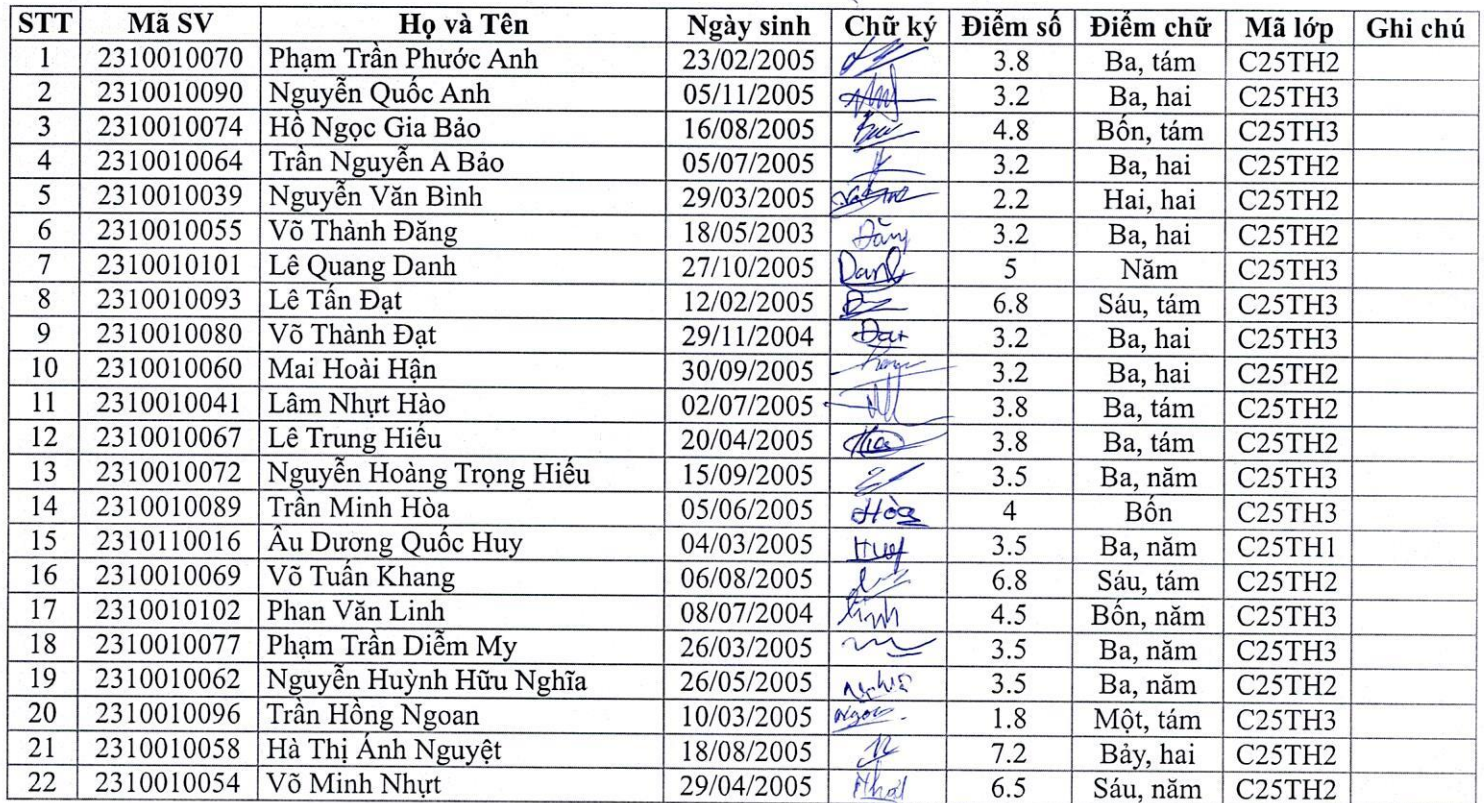 STT Mã SV Họ và Tên Ngày sinh Chữ ký Điểm số Điểm chữ Mã lớp Ghi chú
1 2310010070 Phạm Trần Phước Anh 23/02/2005 3.8 Ba, tám C25TH2
2 2310010090 Nguyễn Quốc Anh 05/11/2005 3.2 Ba, hai C25TH3
3 2310010074 Hồ Ngọc Gia Bảo 16/08/2005 4.8 Bốn, tám C25TH3
4 2310010064 Trần Nguyễn A Bảo 05/07/2005 3.2 Ba, hai C25TH2
5 2310010039 Nguyễn Văn Bình 29/03/2005 2.2 Hai, hai C25TH2
6 2310010055 Võ Thành Đăng 18/05/2003 Đăng 3.2 Ba, hai C25TH2
7 2310010101 Lê Quang Danh 27/10/2005 Danh 5 Năm C25TH3
8 2310010093 Lê Tấn Đạt 12/02/2005 6.8 Sáu, tám C25TH3
9 2310010080 Võ Thành Đạt 29/11/2004 Đạt 3.2 Ba, hai C25TH3
10 2310010060 Mai Hoài Hận 30/09/2005 3.2 Ba, hai C25TH2
11 2310010041 Lâm Nhựt Hào 02/07/2005 3.8 Ba, tám C25TH2
12 2310010067 Lê Trung Hiếu 20/04/2005 3.8 Ba, tám C25TH2
13 2310010072 Nguyễn Hoàng Trọng Hiếu 15/09/2005 3.5 Ba, năm C25TH3
14 2310010089 Trần Minh Hòa 05/06/2005 Hòa 4 Bốn C25TH3
15 2310110016 Âu Dương Quốc Huy 04/03/2005 Huy 3.5 Ba, năm C25TH1
16 2310010069 Võ Tuấn Khang 06/08/2005 6.8 Sáu, tám C25TH2
17 2310010102 Phan Văn Linh 08/07/2004 Linh 4.5 Bốn, năm C25TH3
18 2310010077 Phạm Trần Diễm My 26/03/2005 3.5 Ba, năm C25TH3
19 2310010062 Nguyễn Huỳnh Hữu Nghĩa 26/05/2005 Nghĩa 3.5 Ba, năm C25TH2
20 2310010096 Trần Hồng Ngoan 10/03/2005 1.8 Một, tám C25TH3
21 2310010058 Hà Thị Ánh Nguyệt 18/08/2005 7.2 Bảy, hai C25TH2
22 2310010054 Võ Minh Nhựt 29/04/2005 6.5 Sáu, năm C25TH2